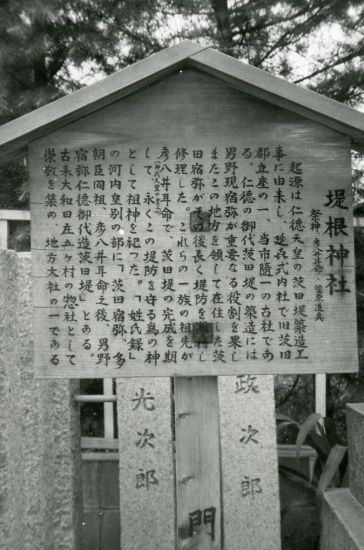 堤根神社
祭神 彦八井耳命 菅原道真
起源は仁徳天皇の茨田堤築造工
事に由来し、延喜式内社で旧茨田
郡五座の一、当市随一の古社であ
る。仁徳の御代茨田堤の築造には
男野現宿弥が重要なる役割を果し
またこの地方を領して在住した茨
田宿弥がその後長く堤防を
修理した。これらの一族の祖先が
彦八井耳命で、茨田堤の完成を期
して、永くこの堤防を守る為の神
として祖神を祀った。「姓氏録」
の河内皇別の部に「茨田宿弥、多
朝臣同祖、彦八井耳命之後、男野
宿弥仁徳御代造茨田堤」とある。
古来大和田庄五ヶ村の惣社として
崇敬を集め、地方大社の一である
政次郎
光次郎
門